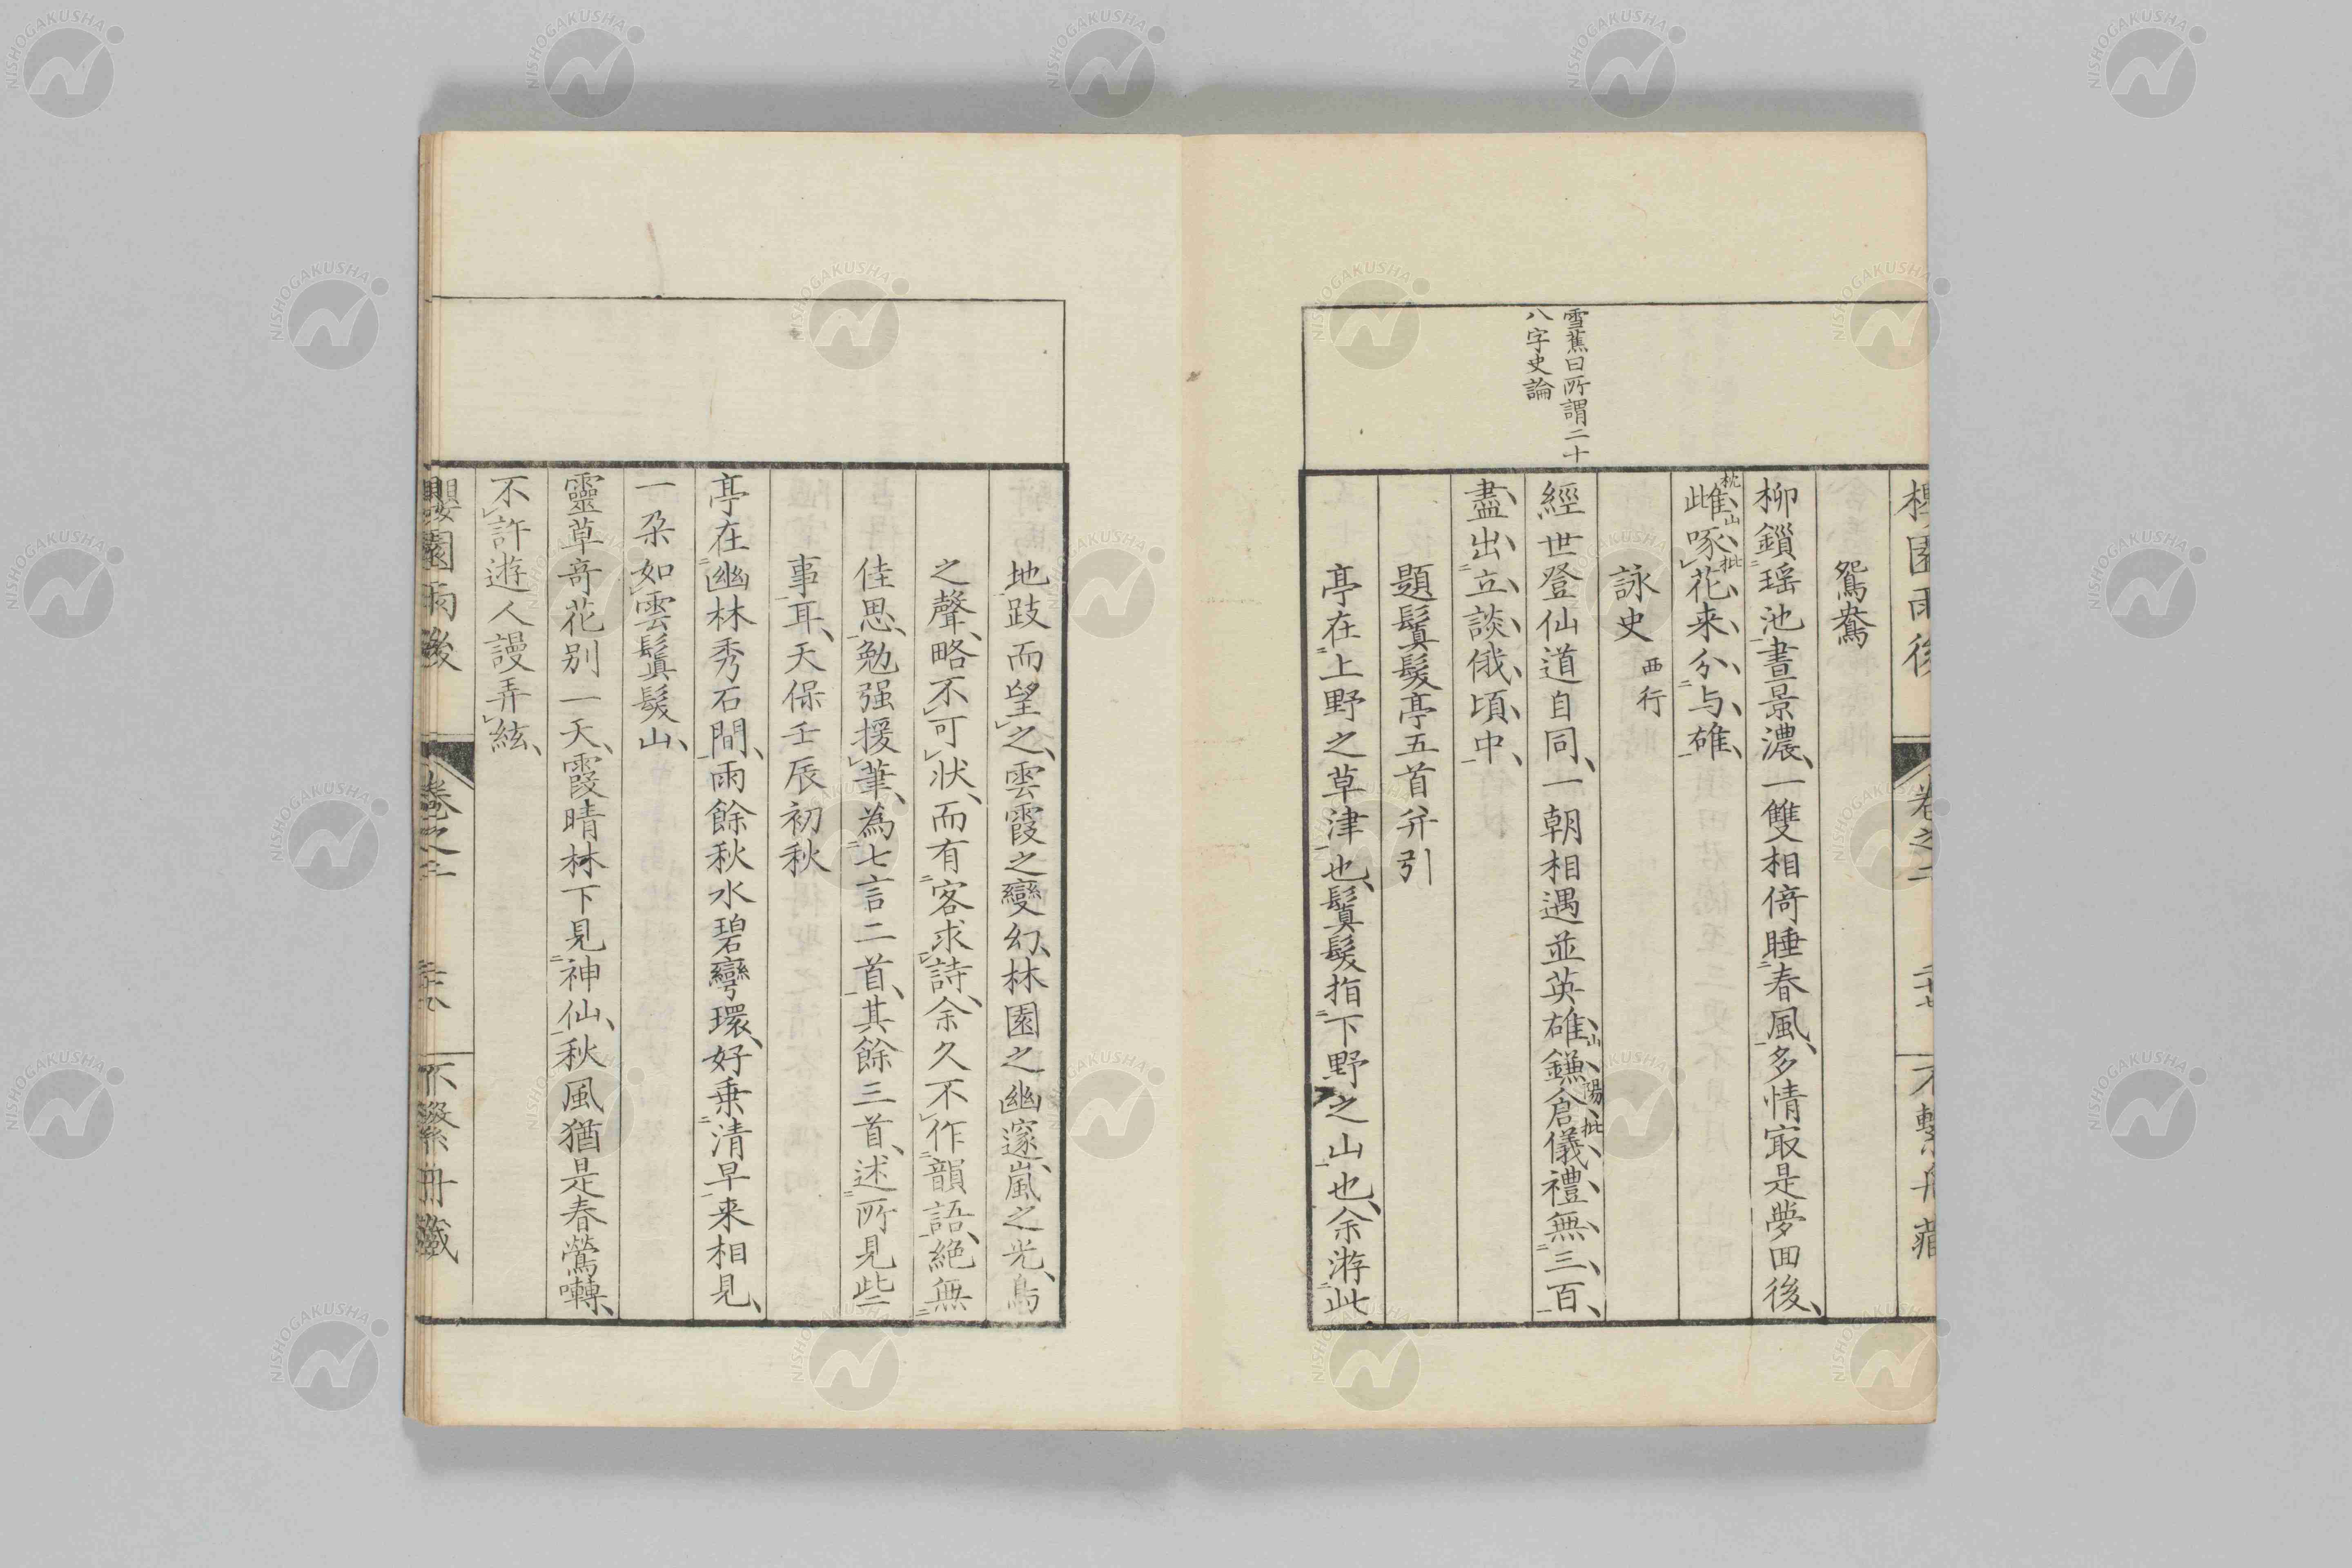 鴛鴦
柳鎖瑶池晝景濃、一雙相倚睡春風、多情㝡是夢回後、
雌啄花来分与雄、
枕山批
詠史 西行
雪蕉曰所謂二十
八字史論
經世登仙道自同、一朝相遇並英雄、鎌倉儀禮無三百、
山陽批
盡出立談俄頃中、
題鬒髮亭五首并引
亭在上野之草津也、鬒髮指下野之山也、余游此
地跂而望之、雲霞之變幻、林園之幽邃、嵐之光、鳥
之聲、略不可状、而有客求詩、余久不作韻語、絶無
佳思、勉强援筆、為七言二首、其餘三首、述所見些
事耳、天保壬辰初秋
亭在幽林秀石間、雨餘秋水碧彎環、好乗清早来相見、
一朶如雲鬒髮山、
靈草竒花別一天、霞晴林下見神仙、秋風猶是春鶯囀、
不許遊人謾弄絃、
櫻園雨後 卷之二
NISHOGAKUSHA